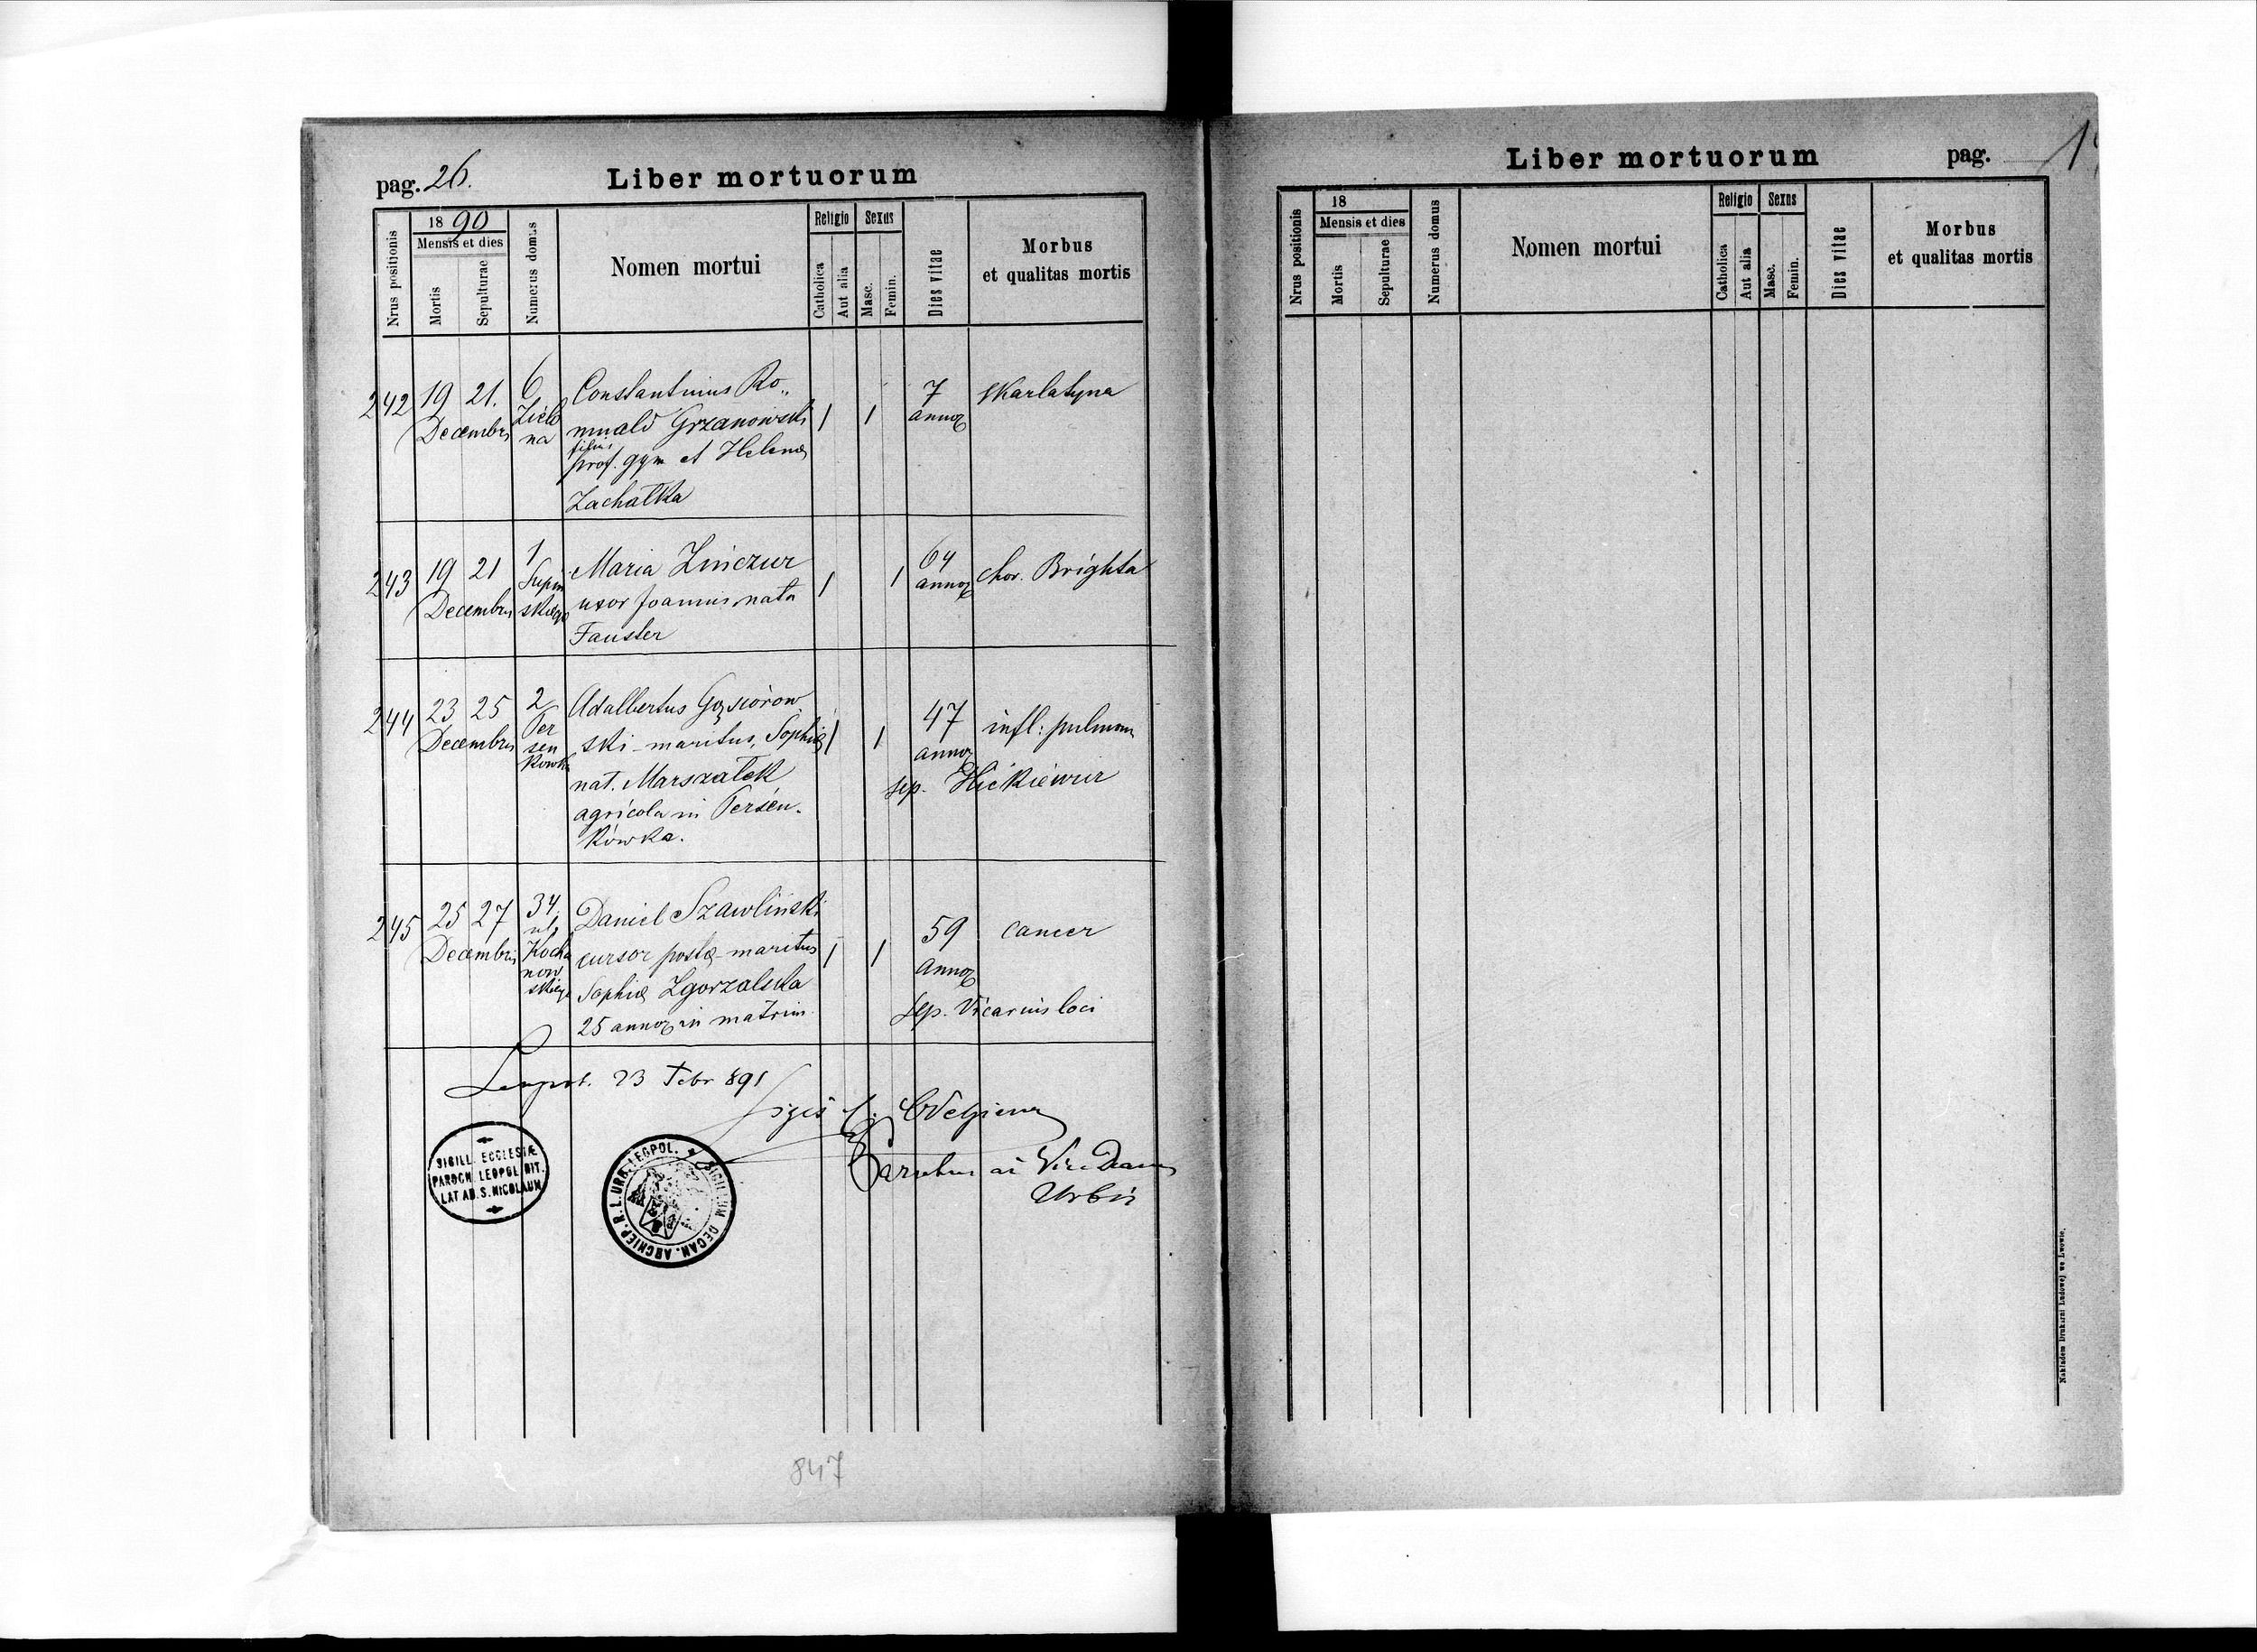 pag. 26.
Liber mortuorum
Nrus positionis
1890
Mensis et dies
Mortis
Sepulturae
Numerus domus
Nomen mortui
Religio
Catholica
Aut alia
Sexus
Masc.
Femin.
Dies vitae
Morbus
et qualitas mortis
242
19
21.
Decembris
6
Zielo
na
Constantinus Ro„
muald Grzanowski
filius
prof. gym et Helenæ
Zachatka
1
1
7
annoꝝ
skarlatyna
243
19
21
Decembris
1
Supiń
skiego
Maria Zinczur
uxor Joannis nata
Fauster
1
1
64
annoꝝ
chor. Brighta
244
23
25
Decembris
2
Per
sen
kówka
Adalbertus Gąsiorow
ski - maritus, Sophiæ
nat. Marszałek
agricola in Persen-
kówka.
1
1
47
annoꝝ
infl: pulmon
sep.
245
25
27
Decembris
34
ul.
Kocha
now
skiego
Daniel Szawliński
cursor postæ - maritus
Sophiæ Zgorzalska
25 annoꝝ in matrim.
1
1
59
annoꝝ
cancer
sep. Vicarius loci
Leopol. 23 Febr 891
Parochus ac Vice Decanus
Urbis
SIGILL. ECCLESIÆ
PAROCH. LEOPOL. RIT.
LAT AD. S. NICOLAUM
SIGILLUM DECAN. ARCHIEP. R. L. URB. LEOPOL.
847
Liber mortuorum
pag.
Nrus positionis
18
Mensis et dies
Mortis
Sepulturae
Numerus domus
Nomen mortui
Religio
Catholica
Aut alia
Sexus
Masc.
Femin.
Dies vitae
Morbus
et qualitas mortis
Nakładem Drukarni Ludowej we Lwowie.